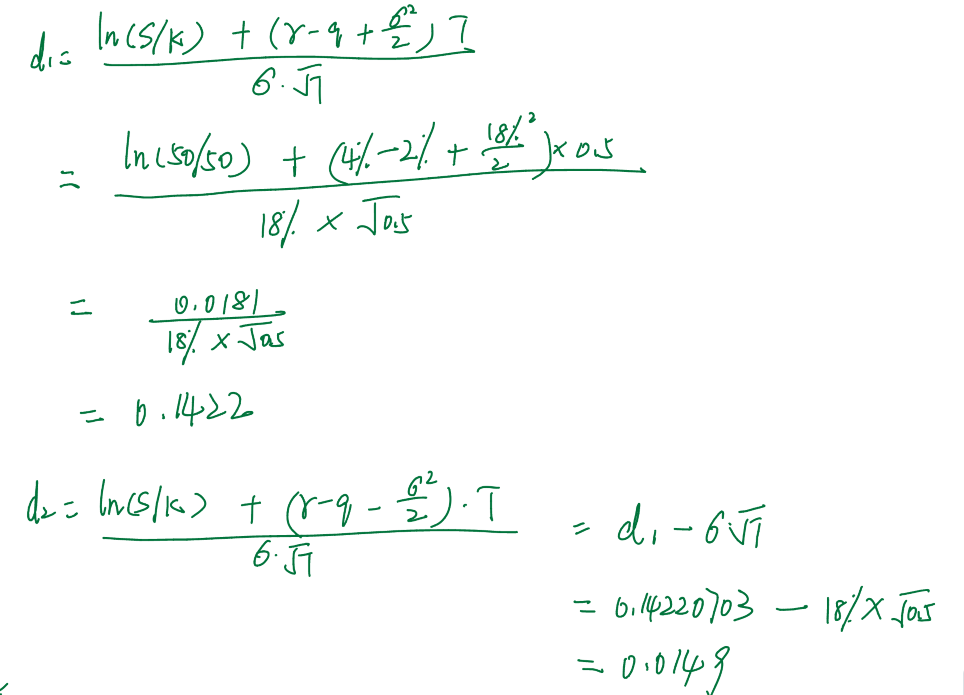 d₁ = (ln(S/K) + (r-q+σ²/2)T) / (σ·√T)
= (ln(50/50) + (4%-2%+18%²/2)×0.5) / (18% × √0.5)
= 0.0181 / (18% × √0.5)
= 0.1422
d₂ = (ln(S/K) + (r-q-σ²/2)·T) / (σ·√T) = d₁ - σ√T
= 0.14220703 - 18%×√0.5
= 0.0149